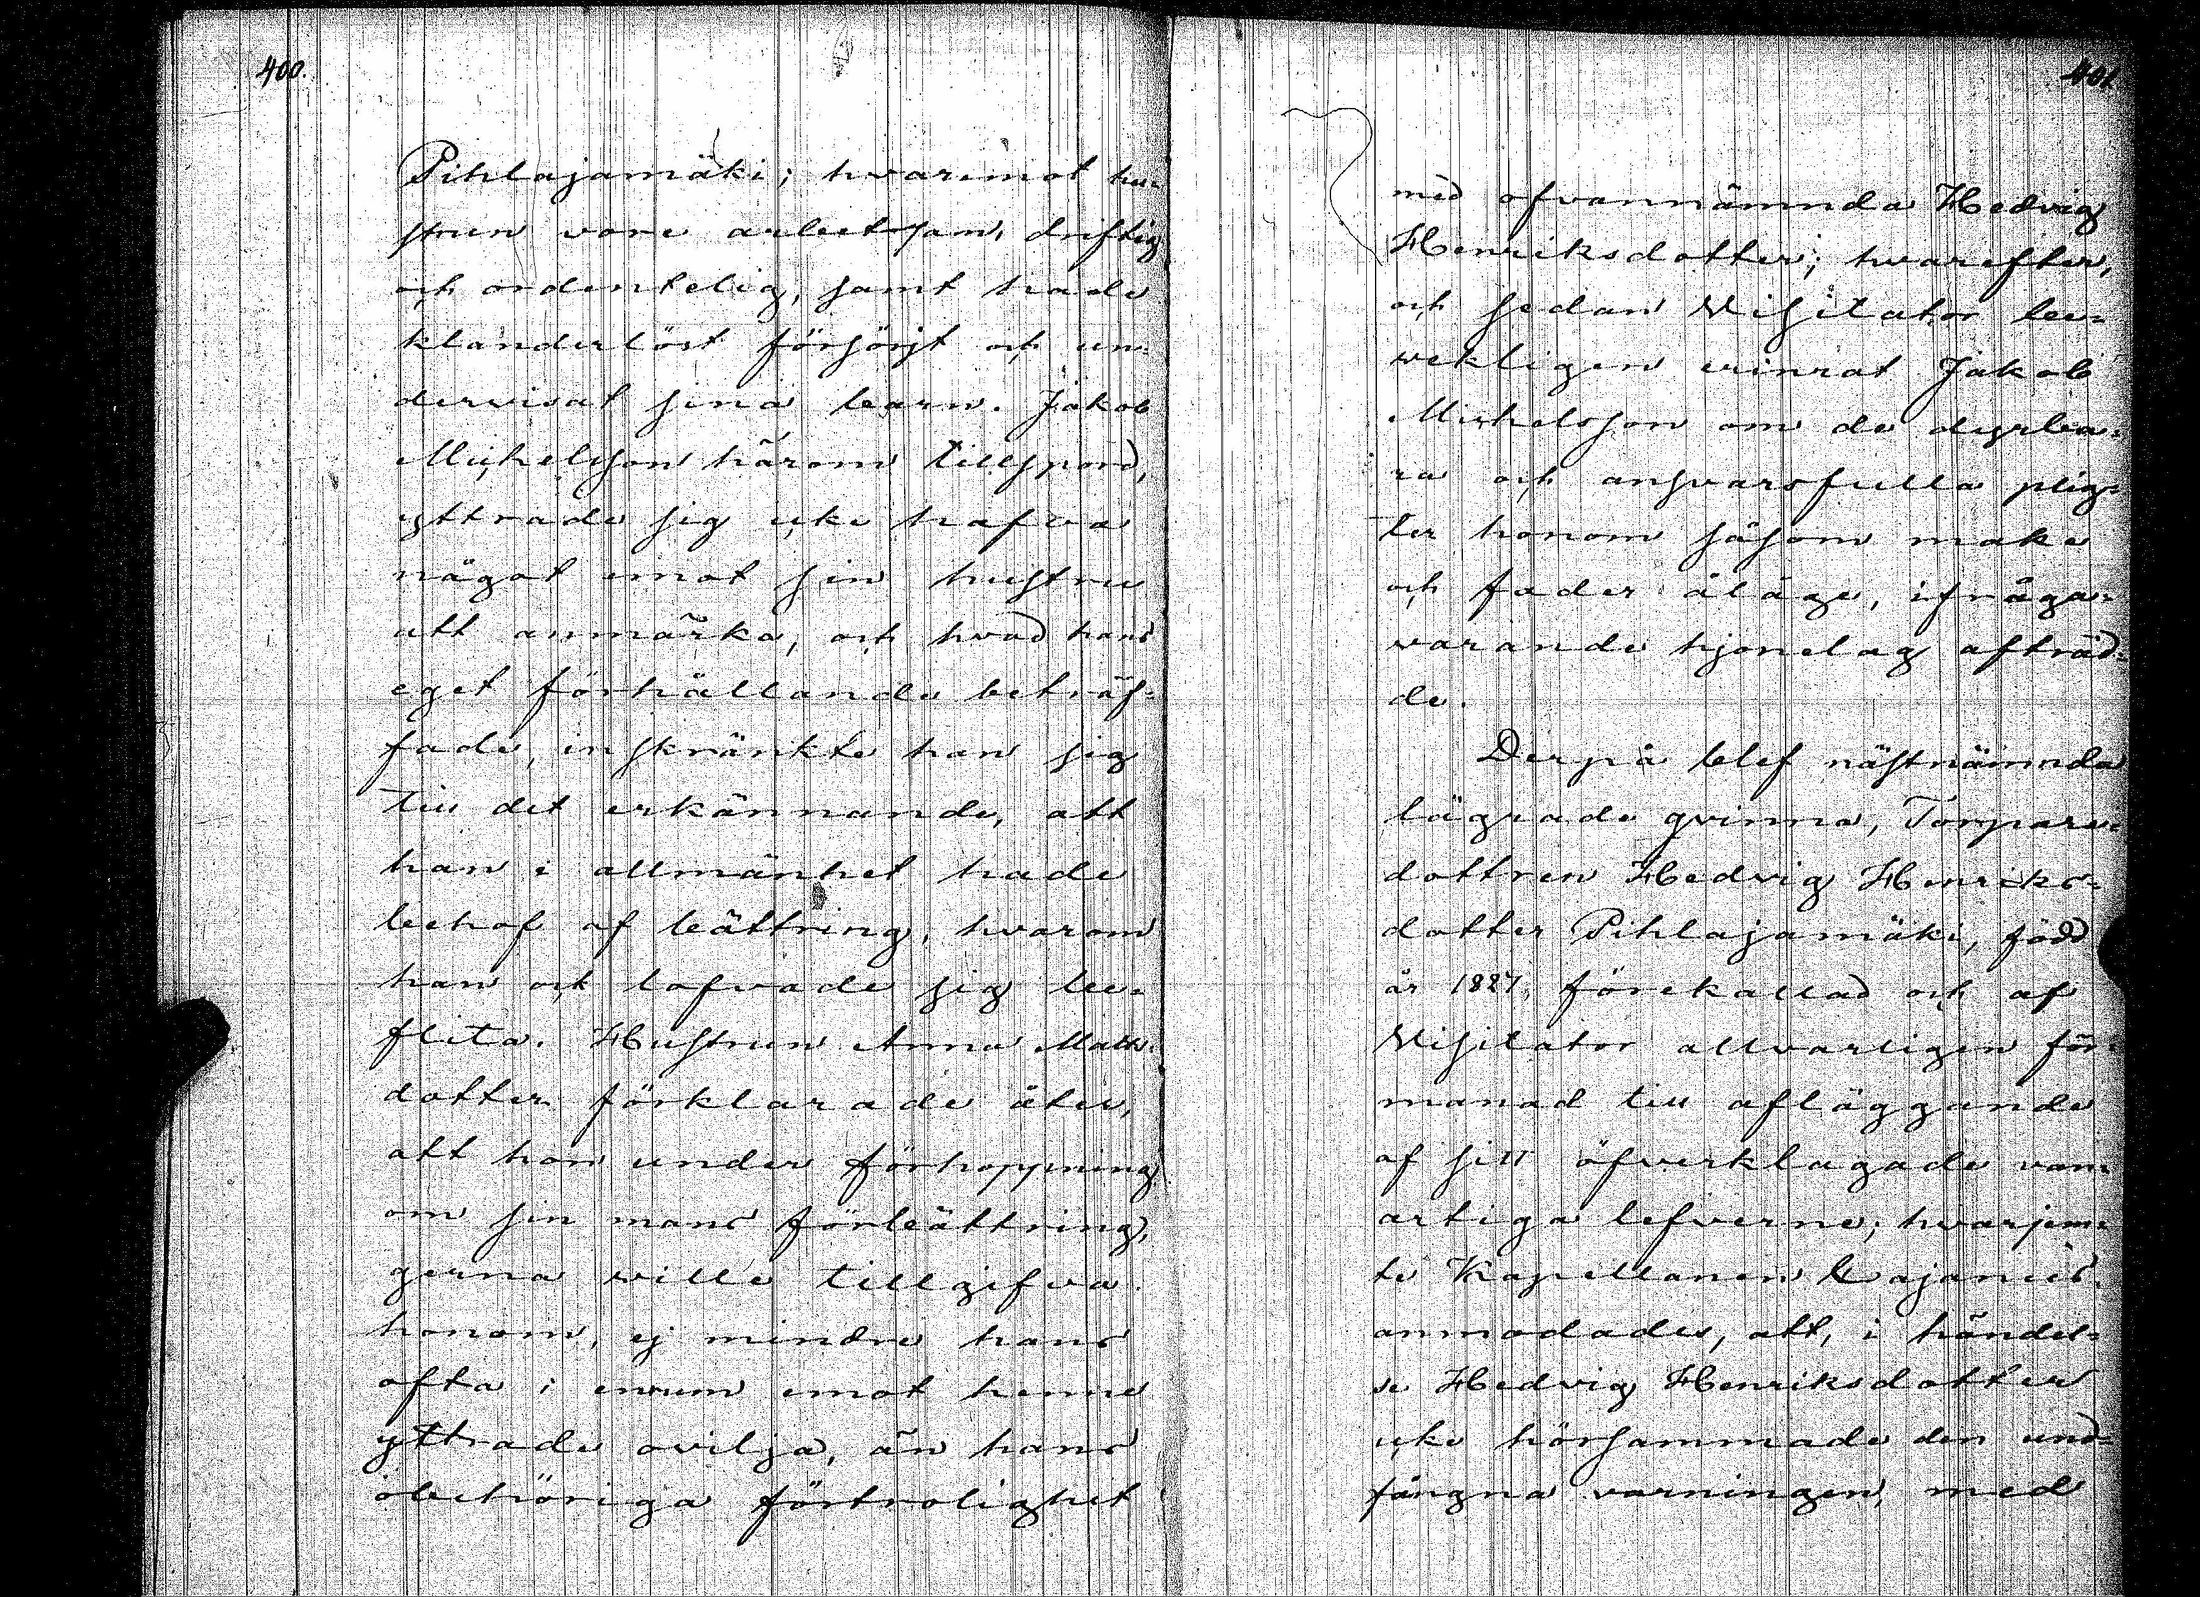 400.
Pihlajamäki; hvaremot hu-
strun vore arbetsam, driftig
och ordentelig, samt hade
klanderlöst försörjt och un-
dervisat sina barn. Jakob
Michelsson härom tillspord,
yttrade sig icke hafva
något emot sin hustru
att anmärka, och hvad hans
eget förhållande beträf-
fade, inskränkte han sig
till det erkännande, att
han i allmänhet hade
behof af bättring, hvarom
han ock lofvade sig be-
flita. Hustrun Anna Matts-
dotter förklarade åter,
att hon under förhoppning
om sin mans förbättring,
gerna ville tillgifva
honom, ej mindre hans
ofta i enrum emot henne
yttrade ovilja, än hans
obehöriga förtrolighet
401
med ofvannämnda Hedvig
Henriksdotter; hvarefter,
och sedan Visitator be-
vekligen erinrat Jakob
Michelsson om de dyrba-
ra och ansvarsfulla plig-
ter honom såsom make
och fader åläge, ifråga-
varande hjonelag afträd-
de.
Derpå blef nästnämnda
lägrade qvinna, Torpare-
dottren Hedvig Henriks-
dotter Pihlajamäki, född
år 1827, förekallad och af
Visitator allvarligen för-
manad till afläggande
af sitt öfverklagade van-
artiga lefverne; hvarjem-
te Kapellanen Cajanus
anmodades, att, i händel-
se Hedvig Henriksdotter
icke hörsammade den und-
fångna varningen, med